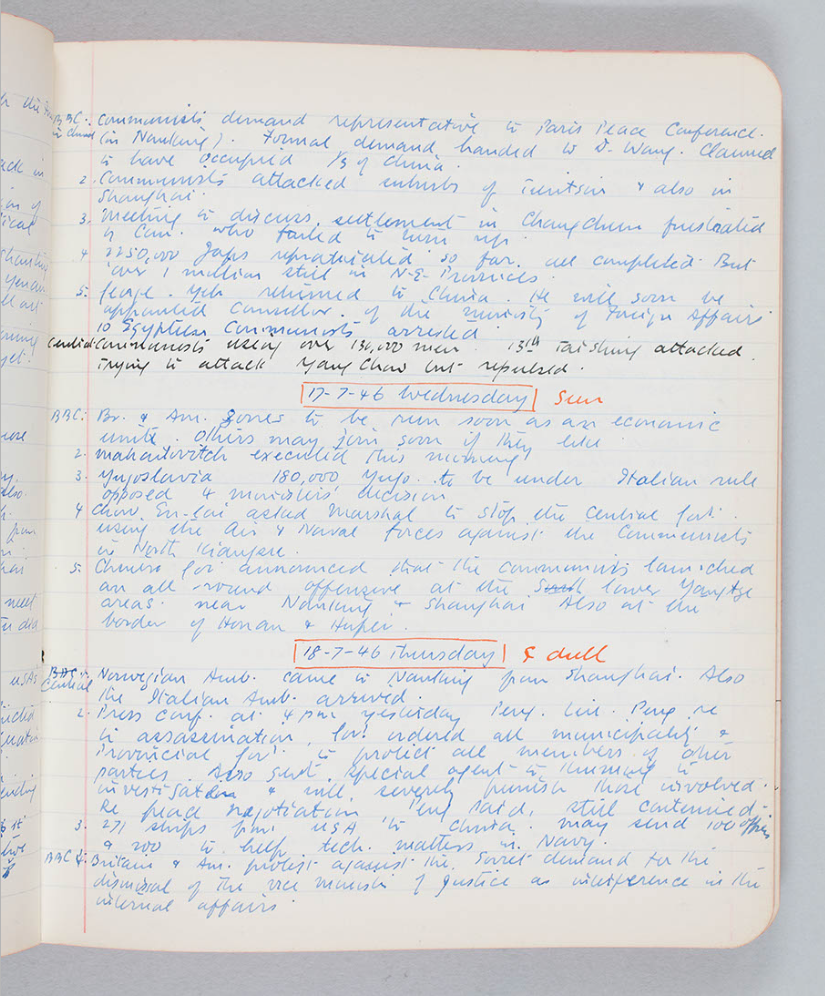 BBC: Communists demand representative to Paris Peace Conference.
(in Nanking). Formal demand handed to D. Wang. Claimed
to have occupied 1/3 of China.
2. Communists attacked suburbs of Tientsin & also in
Shanghai.
3. Meeting to discuss settlement in Changchun frustrated
by Com. who failed to turn up.
4 2250,000 Japs repatriated so far. all completed. But
over 1 million still in N-E- Provinces.
5. George. Yeh returned to China. He will soon be
appointed Counsellor. of the Ministry of Foreign Affairs
10 Egyptian Communists arrested.
Central: Communists using over 130,000 men. 13th Taishing attacked.
Trying to attack Yang Chow but repulsed.
17-7-46 Wednesday Sun
BBC: Br. & Am. Zones to be run soon as an economic
unit. Others may join soon if they like.
2. Mahailovitch executed this morning
3. Yugoslavia 180,000 Yugo. to be under Italian rule
opposed 4 ministers' decision
4 Chow En-lai asked Marshal to stop the Central Gov.
using the Air & Naval Forces against the Communists
in North Kiangsu.
5. Chinese Gov announced that the communists launched
an all-round offensive at the South lower Yangtze
areas near Nanking & Shanghai Also at the
border of Honan & Hupei.
18-7-46 Thursday & dull
BBC: Norwegian Amb. came to Nanking from Shanghai. Also
Central the Italian Amb. arrived.
2. Press Conf. at 4 pm yesterday Peng. re
to assassination, Gov. ordered all municipality &
Provincial gov. to protect all members of other
parties. Also sent special agent to Kunming to
investigation & will severely punish those involved.
Re peace negotiation Peng said, still continued.
3. 271 ships from USA to China. May send 100 offices
& 200 to help tech. matters in Navy.
BBC 4: Britain & Am. protest against the Soviet demand for the
dismissal of the vice minister of Justice as interference in the
internal affairs.